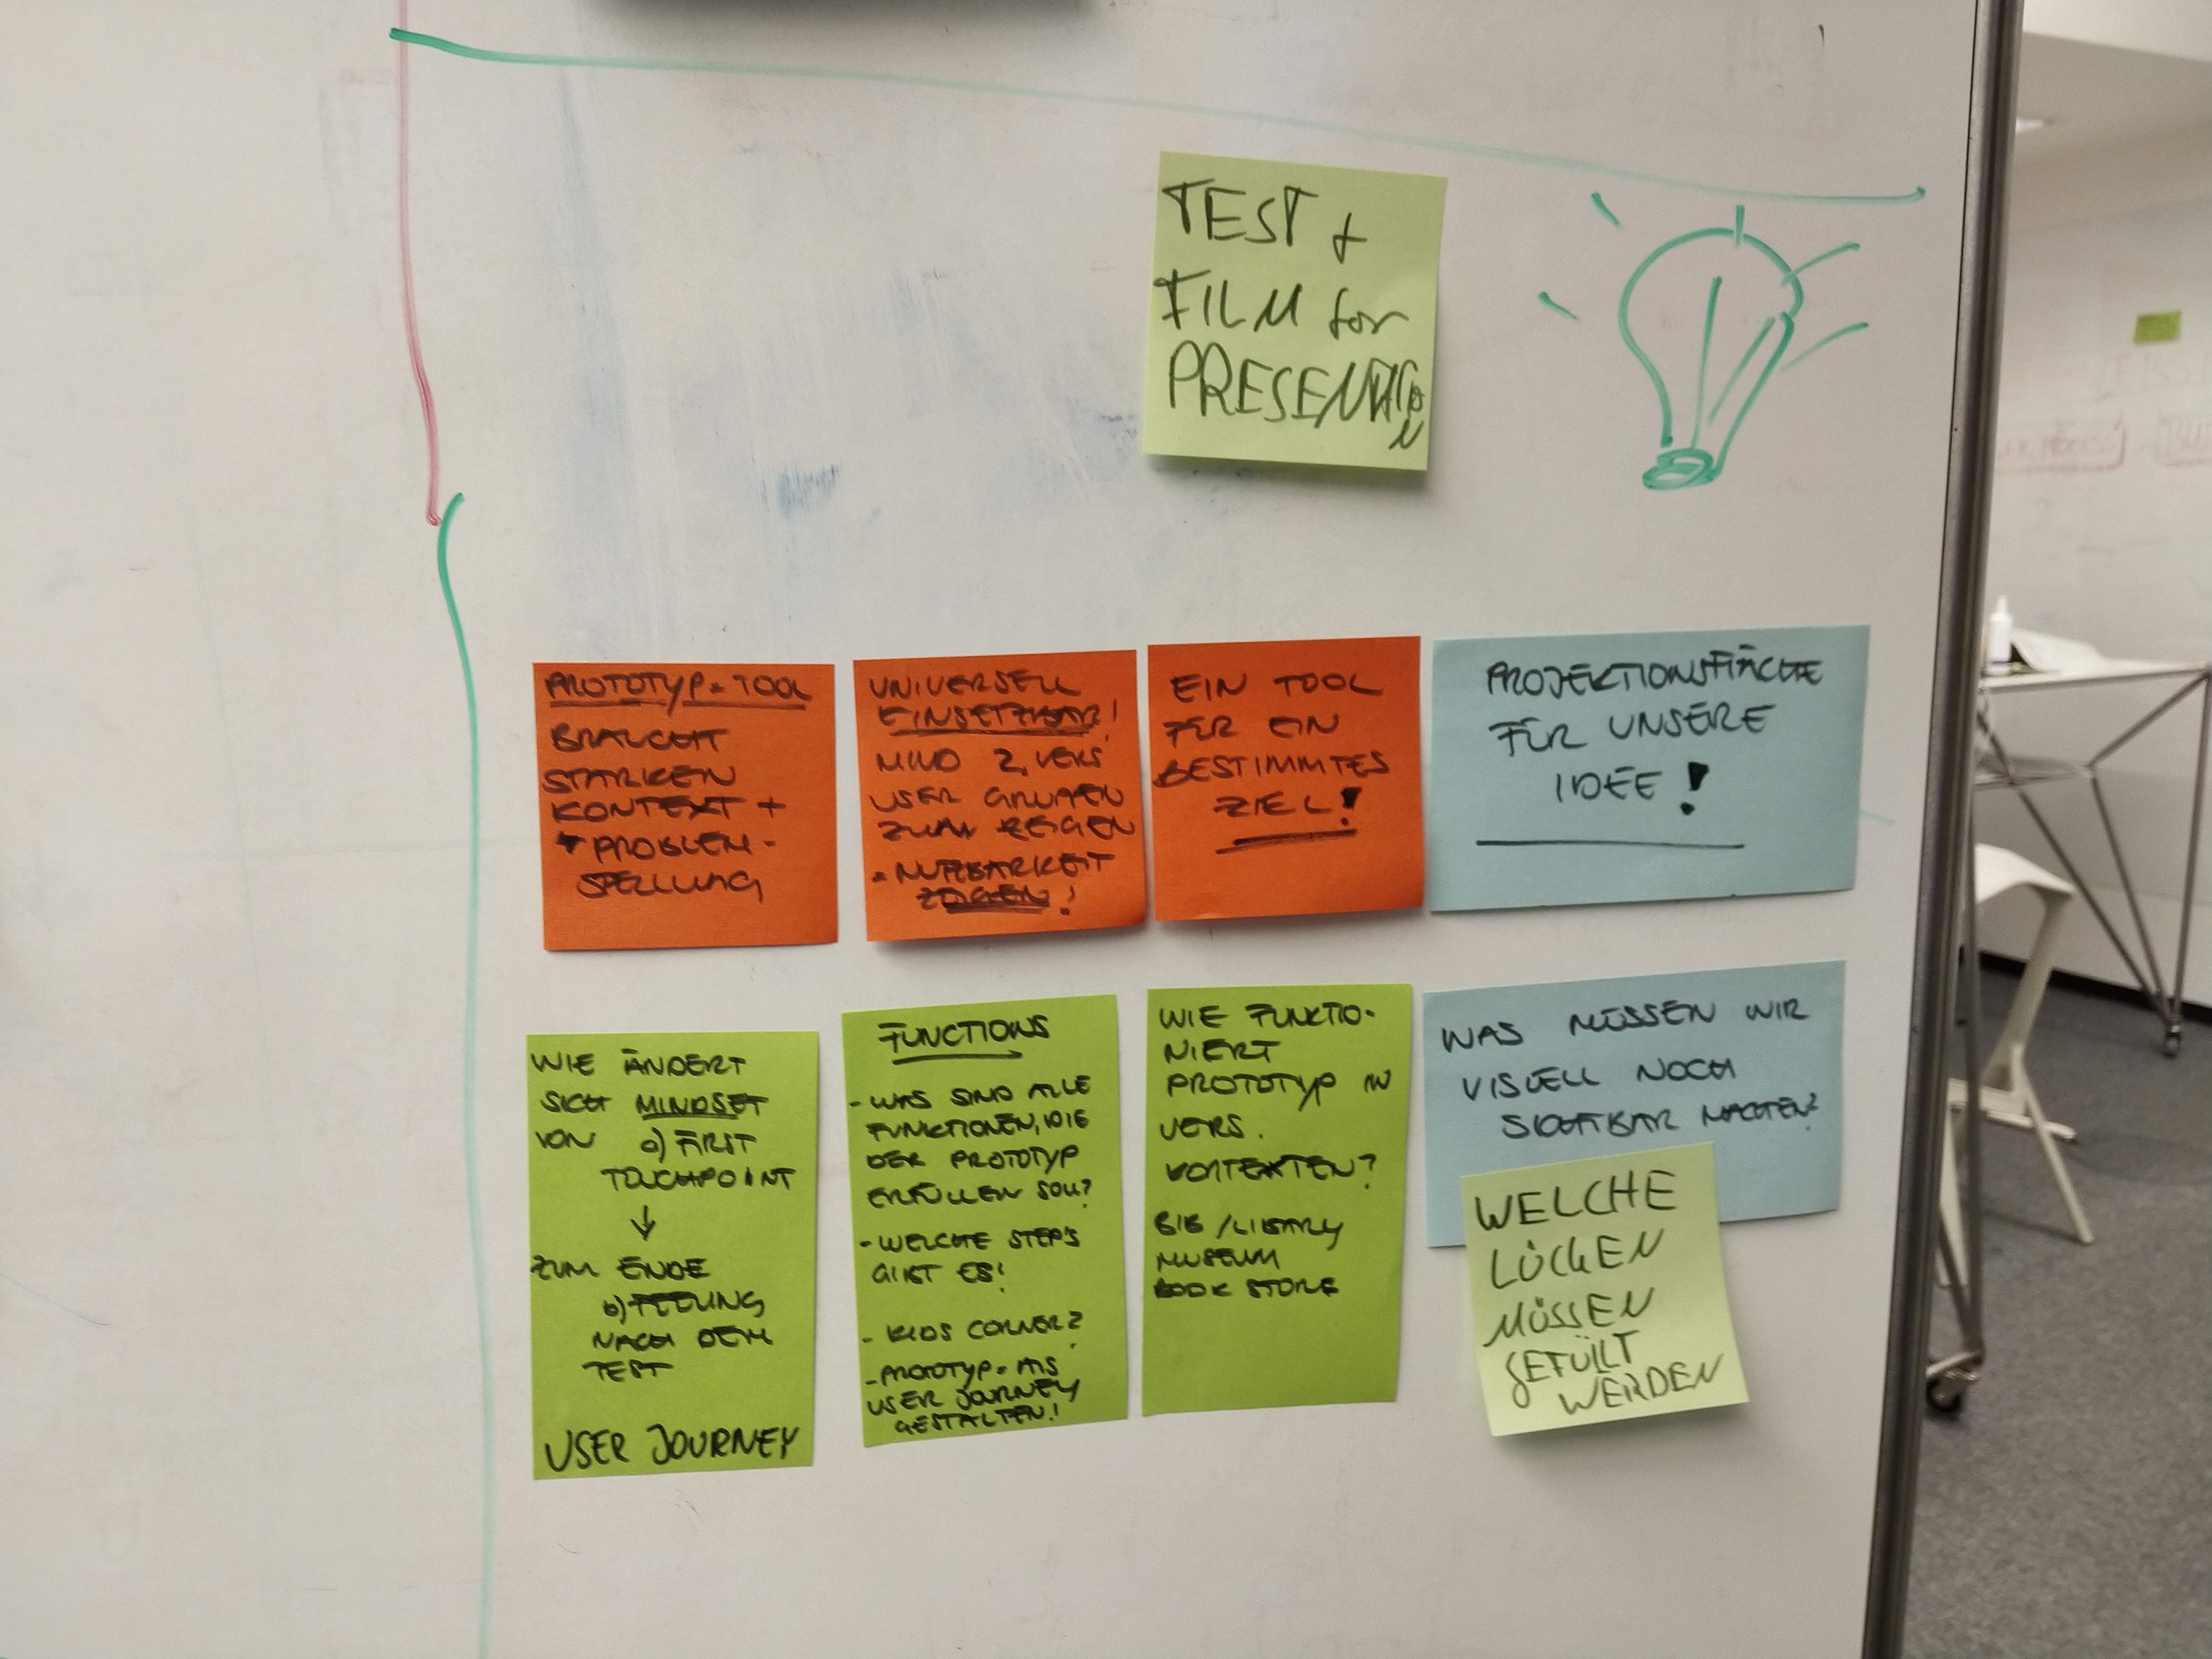 TEST +
FILM for
PRESENTATION
PROTOTYP = TOOL
BRAUCHT
STARKEN
KONTEXT +
PROBLEM-
STELLUNG
UNIVERSELL
EINSETZBAR!
MIND 2 VERS
USER GRUPPEN
ZUM ZEIGEN
= NUTZBARKEIT
ZEIGEN!
EIN TOOL
FÜR EIN
BESTIMMTES
ZIEL!
PROJEKTIONSFLÄCHE
FÜR UNSERE
IDEE!
WIE ÄNDERT
SICH MINDSET
VON a) FIRST
TOUCHPOINT
↓
ZUM ENDE
b) FEELING
NACH DEM
TEST
USER JOURNEY
FUNCTIONS
- WAS SIND ALLE
FUNKTIONEN, DIE
DER PROTOTYP
ERFÜLLEN SOLL?
- WELCHE STEP'S
GIBT ES?
- KIDS CORNER?
- PROTOTYP = ALS
USER JOURNEY
GESTALTEN!
WIE FUNKTIO-
NIERT
PROTOTYP IN
VERS.
KONTEXTEN?
BIB / LIBARLY
MUSEUM
BOOK STORE
WAS MÜSSEN WIR
VISUELL NOCH
SICHTBAR MACHEN?
WELCHE
LÜCKEN
MÜSSEN
GEFÜLLT
WERDEN